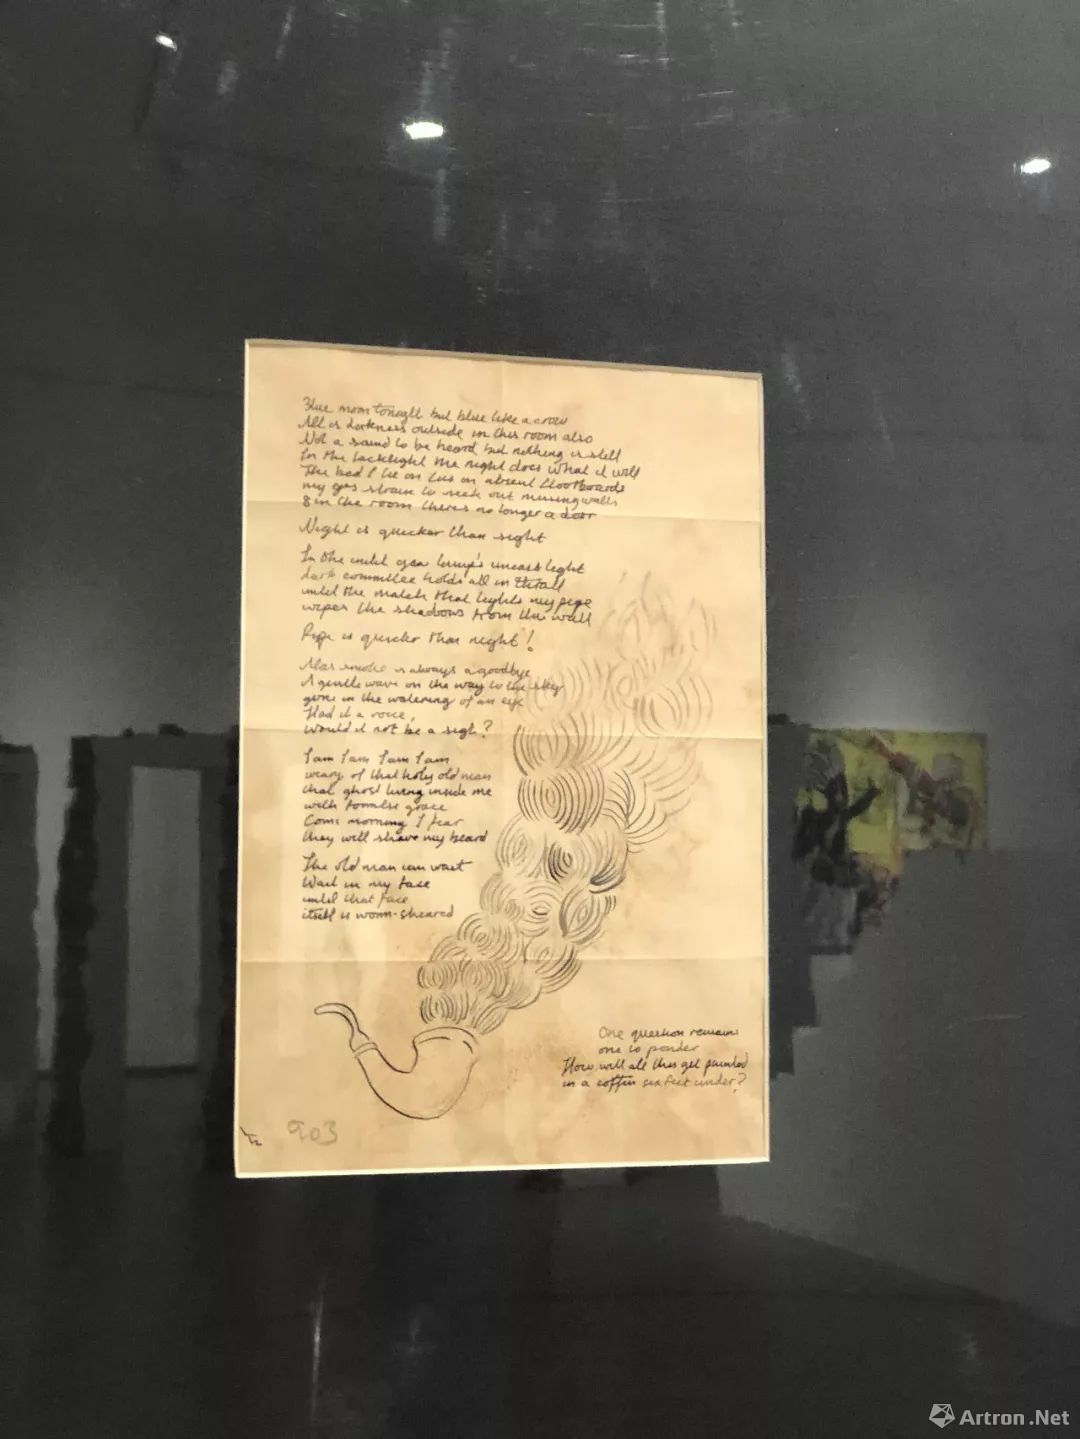 Blue moon tonight but blue like a crow
All is darkness outside in this room also
Not a sound to be heard but nothing is still
In the lacklight the night does what it will
The bed I lie on lies on absent floorboards
my eyes strain to seek out missing walls
& in the room theres no longer a door
Night is quicker than sight
In the unlit gas lamp's uncast light
dark committee holds all in thrall
until the match that lights my pipe
wipes the shadows from the wall
Pipe is quicker than night!
Alas smoke is always a goodbye
A gentle wave on the way to the sky
gone in the watering of an eye
Had it a voice,
would it not be a sigh?
I am I am I am I am
weary of that holy old man
that ghost living inside me
with grace
Come morning I fear
they will shave my beard
The old man can wait
Wait in my face
until that face
itself is worm-sheared
One question remains
one to ponder
How will all this get painted
in a coffin six feet under?
903
Artron.Net